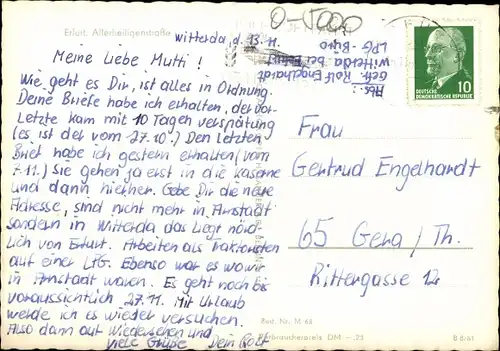 Erfurt. Allerheiligenstraße
0-5000
Witterda, d. 13.11.
Meine Liebe Mutti!
Wie geht es Dir, ist alles in Ordnung.
Deine Briefe habe ich erhalten, der vor-
Letzte kam mit 10 Tagen verspätung
(es ist der vom 27.10.) Den Letzten
Brief habe ich gestern erhalten (vom
7.11.) Sie gehen ja erst in die kaserne
und dann hierher. Gebe Dir die neue
Adresse, sind nicht mehr in Arnstadt
sondern in Witterda das Liegt nörd
Lich von Erfurt. Arbeiten als Traktoristen
auf einer LPG. Ebenso war es wo wir
in Arnstadt waren. Es geht noch bis
voraussichtlich 27.11. Mit Urlaub
werde ich es wieder versuchen.
Also dann auf Wiedersehen und
viele Grüße Dein Rolf
Abs.:
Gefr. Rolf Engelhardt
Witterda bei Erfurt
LPG-Büro
DEUTSCHE
DEMOKRATISCHE REPUBLIK
10
Frau
Gertrud Engelhardt
65 Gera/Th.
Rittergasse 12
Best. Nr. M 63
Verbraucherpreis DM -,25
B 8/61